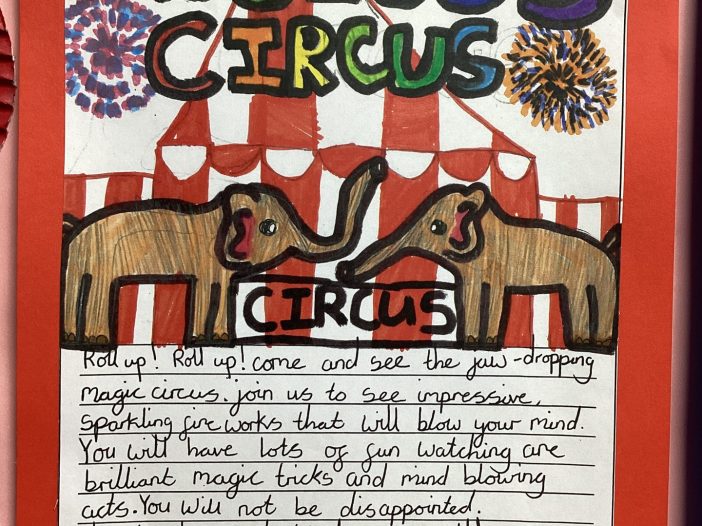 CIRCUS
CIRCUS
Roll up! Roll up! come and see the jaw-dropping
magic circus. join us to see impressive,
sparkling fireworks that will blow your mind.
You will have lots of fun watching are
brilliant magic tricks and mind blowing
acts. You will not be disappointed.